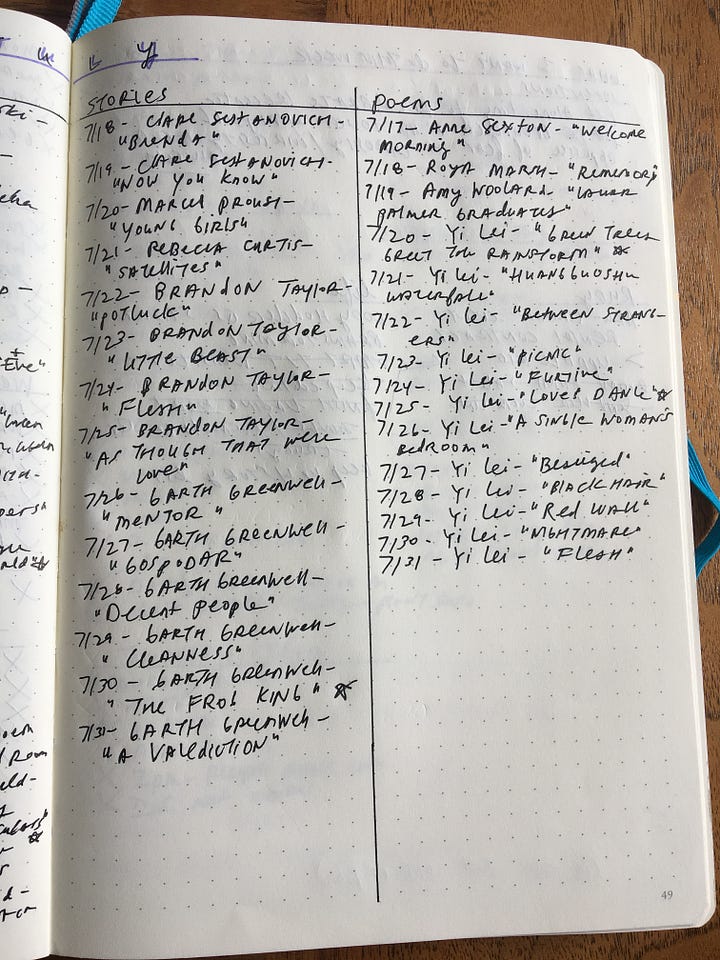 STORIES
7/18- Clare Sestanovich-
"Brenda"
7/19- Clare Sestanovich-
"Now You Know"
7/20- Marcel Proust-
"Young Girls"
7/21- Rebecca Curtis-
"Satellites"
7/22- Brandon Taylor-
"Potluck"
7/23- Brandon Taylor-
"Little Beast"
7/24- Brandon Taylor-
"Flesh"
7/25- Brandon Taylor-
"As Though That Were
Love"
7/26- Garth Greenwell-
"Mentor"
7/27- Garth Greenwell-
"Gospodar"
7/28- Garth Greenwell-
"Decent People"
7/29- Garth Greenwell-
"Cleanness"
7/30- Garth Greenwell-
"The Frog King" ☆
7/31- Garth Greenwell-
"A Valediction"
Poems
7/17- Anne Sexton- "Welcome
Morning"
7/18- Roya Marsh-
7/19- Amy Woolard- "Laura
Palmer Graduates"
7/20- Yi Lei- "Green Trees
Greet the Rainstorm" ☆
7/21- Yi Lei- "Huangguoshu
Waterfall"
7/22- Yi Lei- "Between Strang-
ers"
7/23- Yi Lei- "Picnic"
7/24- Yi Lei- "Furtive"
7/25- Yi Lei- "Love's Dance" ☆
7/26- Yi Lei- "A Single Woman's
Bedroom"
7/27- Yi Lei- "Besieged"
7/28- Yi Lei- "Black Hair"
7/29- Yi Lei- "Red Wall"
7/30- Yi Lei- "Nightmare"
7/31- Yi Lei- "Flesh"
49